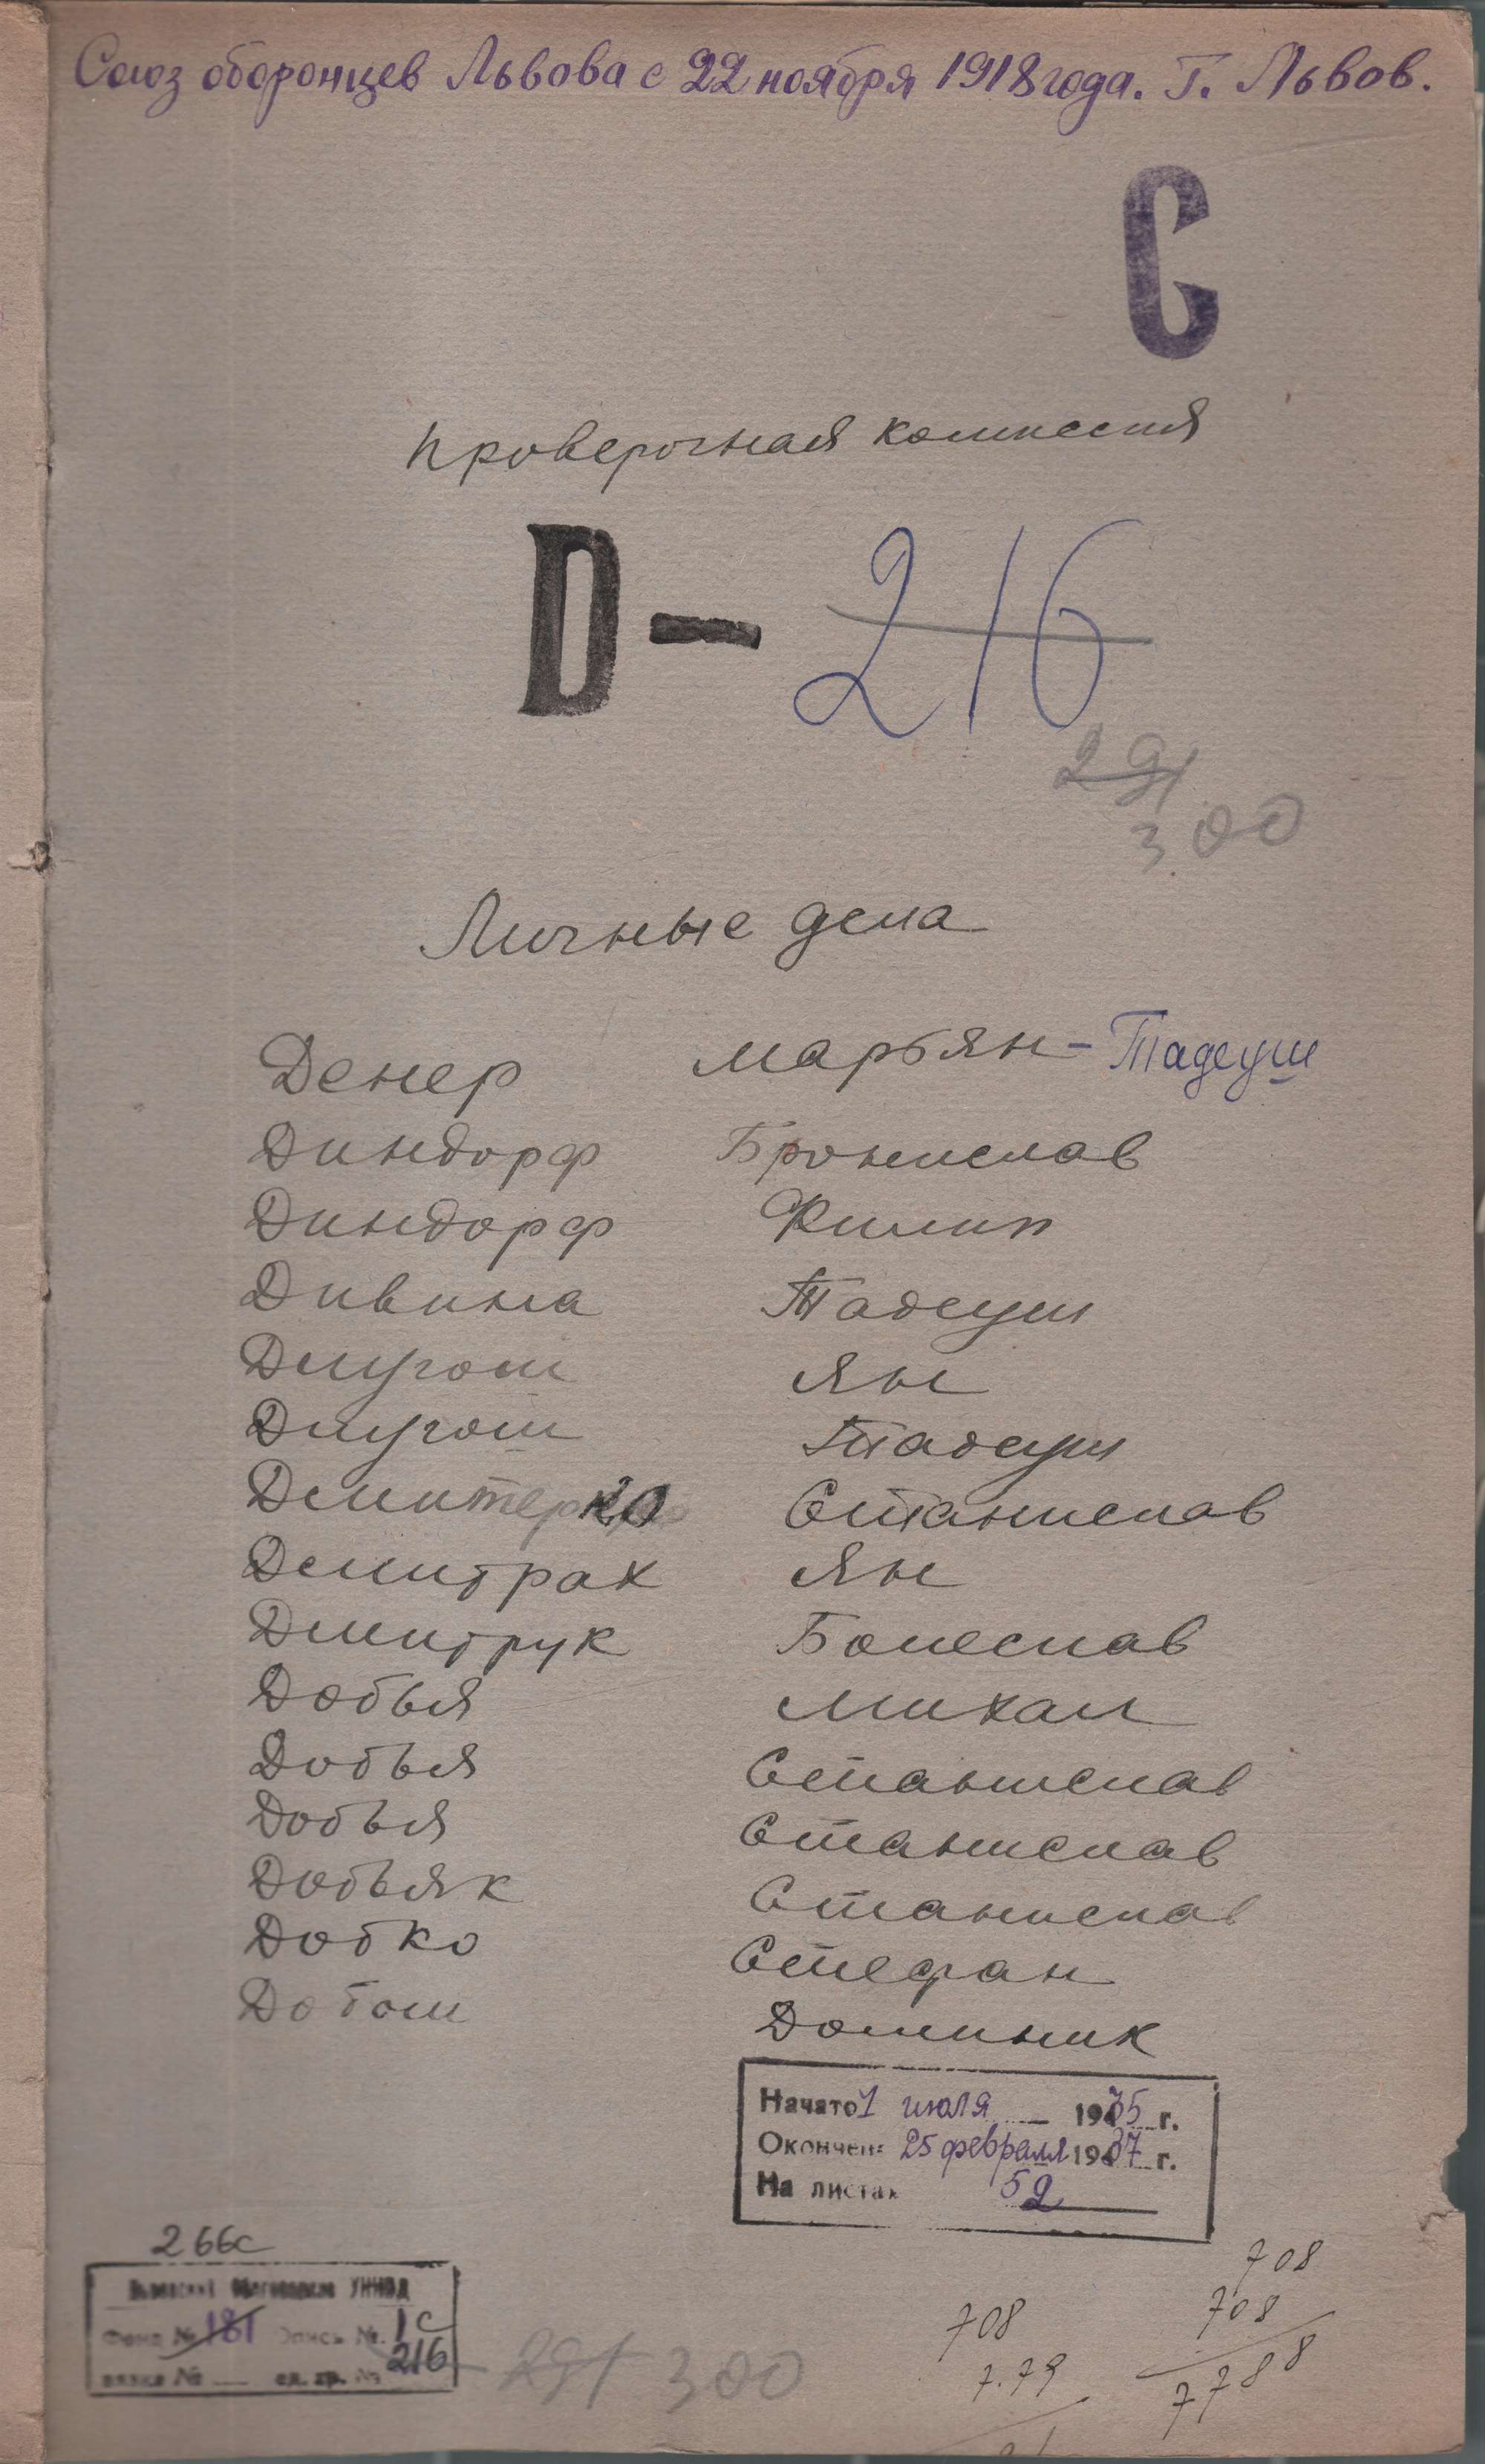 Союз оборонцев Львова с 22 ноября 1918 года. Г. Львов.
С
Проверочная комиссия
D — 216
291
300
Личные дела
Денер Марьян-Тадеуш
Диндорф Бронислав
Диндорф Филип
Дивина Тадеуш
Длугош Ян
Длугош Тадеуш
Дмитерко Станислав
Дмитрах Ян
Дмитрук Болеслав
Добья Михал
Добья Станислав
Добья Станислав
Добьяк Станислав
Добко Стефан
Добош Доминик
Начато 1 июля 1935 г.
Окончен 25 февраля 1937 г.
На листах 52
266с
УНКВД
Фонд № 181 Опись № 1с
вязка № ед. хр. № 216
291 300
708
708
7788
708
7.79